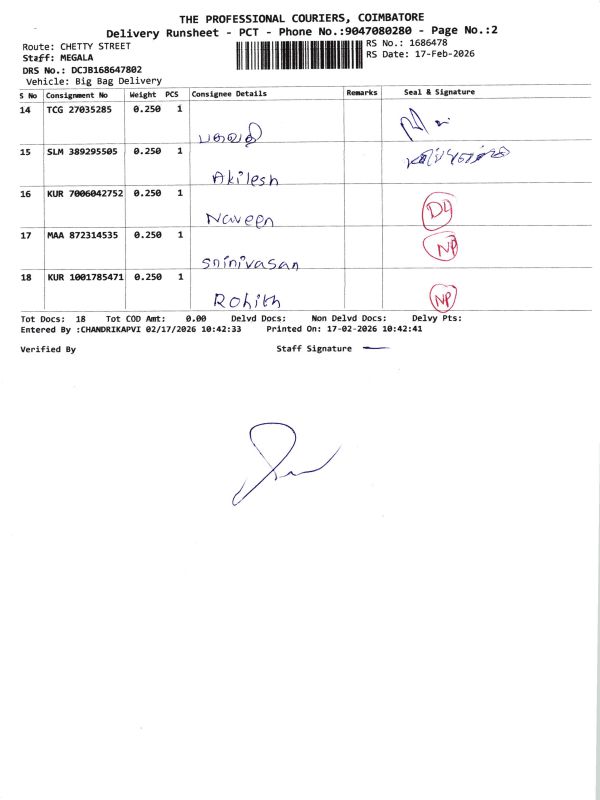 THE PROFESSIONAL COURIERS, COIMBATORE
Delivery Runsheet - PCT - Phone No.:9047080280 - Page No.:2
Route: CHETTY STREET
RS No.: 1686478
Staff: MEGALA
RS Date: 17-Feb-2026
DRS No.: DCJB168647802
Vehicle: Big Bag Delivery
S No Consignment No Weight PCS Consignee Details Remarks Seal & Signature
14 TCG 27035285 0.250 1
பகவதி
15 SLM 389295505 0.250 1
Akilesh
16 KUR 7006042752 0.250 1
Naveen DL
17 MAA 872314535 0.250 1 NP
Srinivasan
18 KUR 1001785471 0.250 1
Rohith NP
Tot Docs: 18 Tot COD Amt: 0.00 Delvd Docs: Non Delvd Docs: Delvy Pts:
Entered By :CHANDRIKAPVI 02/17/2026 10:42:33 Printed On: 17-02-2026 10:42:41
Verified By Staff Signature